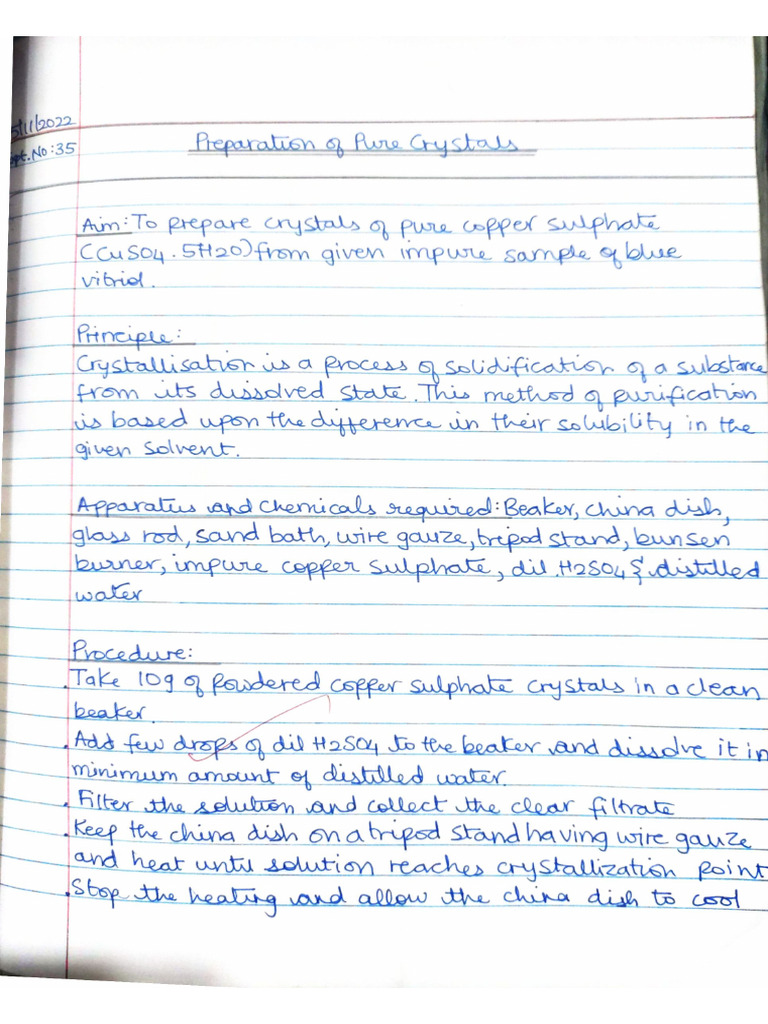 5/11/2022
pt.No:35
Preparation of Pure Crystals
Aim: To prepare crystals of pure copper sulphate
(CuSO4.5H2O) from given impure sample of blue
vitriol.
Principle:
Crystallisation is a process of solidification of a substance
from its dissolved state. This method of purification
is based upon the difference in their solubility in the
given solvent.
Apparatus and chemicals required: Beaker, china dish,
glass rod, sand bath, wire gauze, tripod stand, bunsen
burner, impure copper sulphate, dil.H2SO4 & distilled
water
Procedure:
. Take 10g of powdered copper sulphate crystals in a clean
beaker.
. Add few drops of dil H2SO4 to the beaker and dissolve it in
minimum amount of distilled water.
. Filter the solution and collect the clear filtrate
. Keep the china dish on a tripod stand having wire gauze
and heat until solution reaches crystallization point
. Stop the heating and allow the china dish to cool